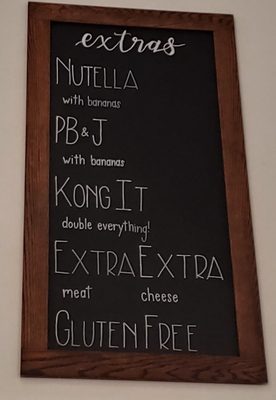 extras
NUTELLA
with bananas
PB&J
with bananas
KONG IT
double everything!
EXTRA EXTRA
meat cheese
GLUTEN FREE